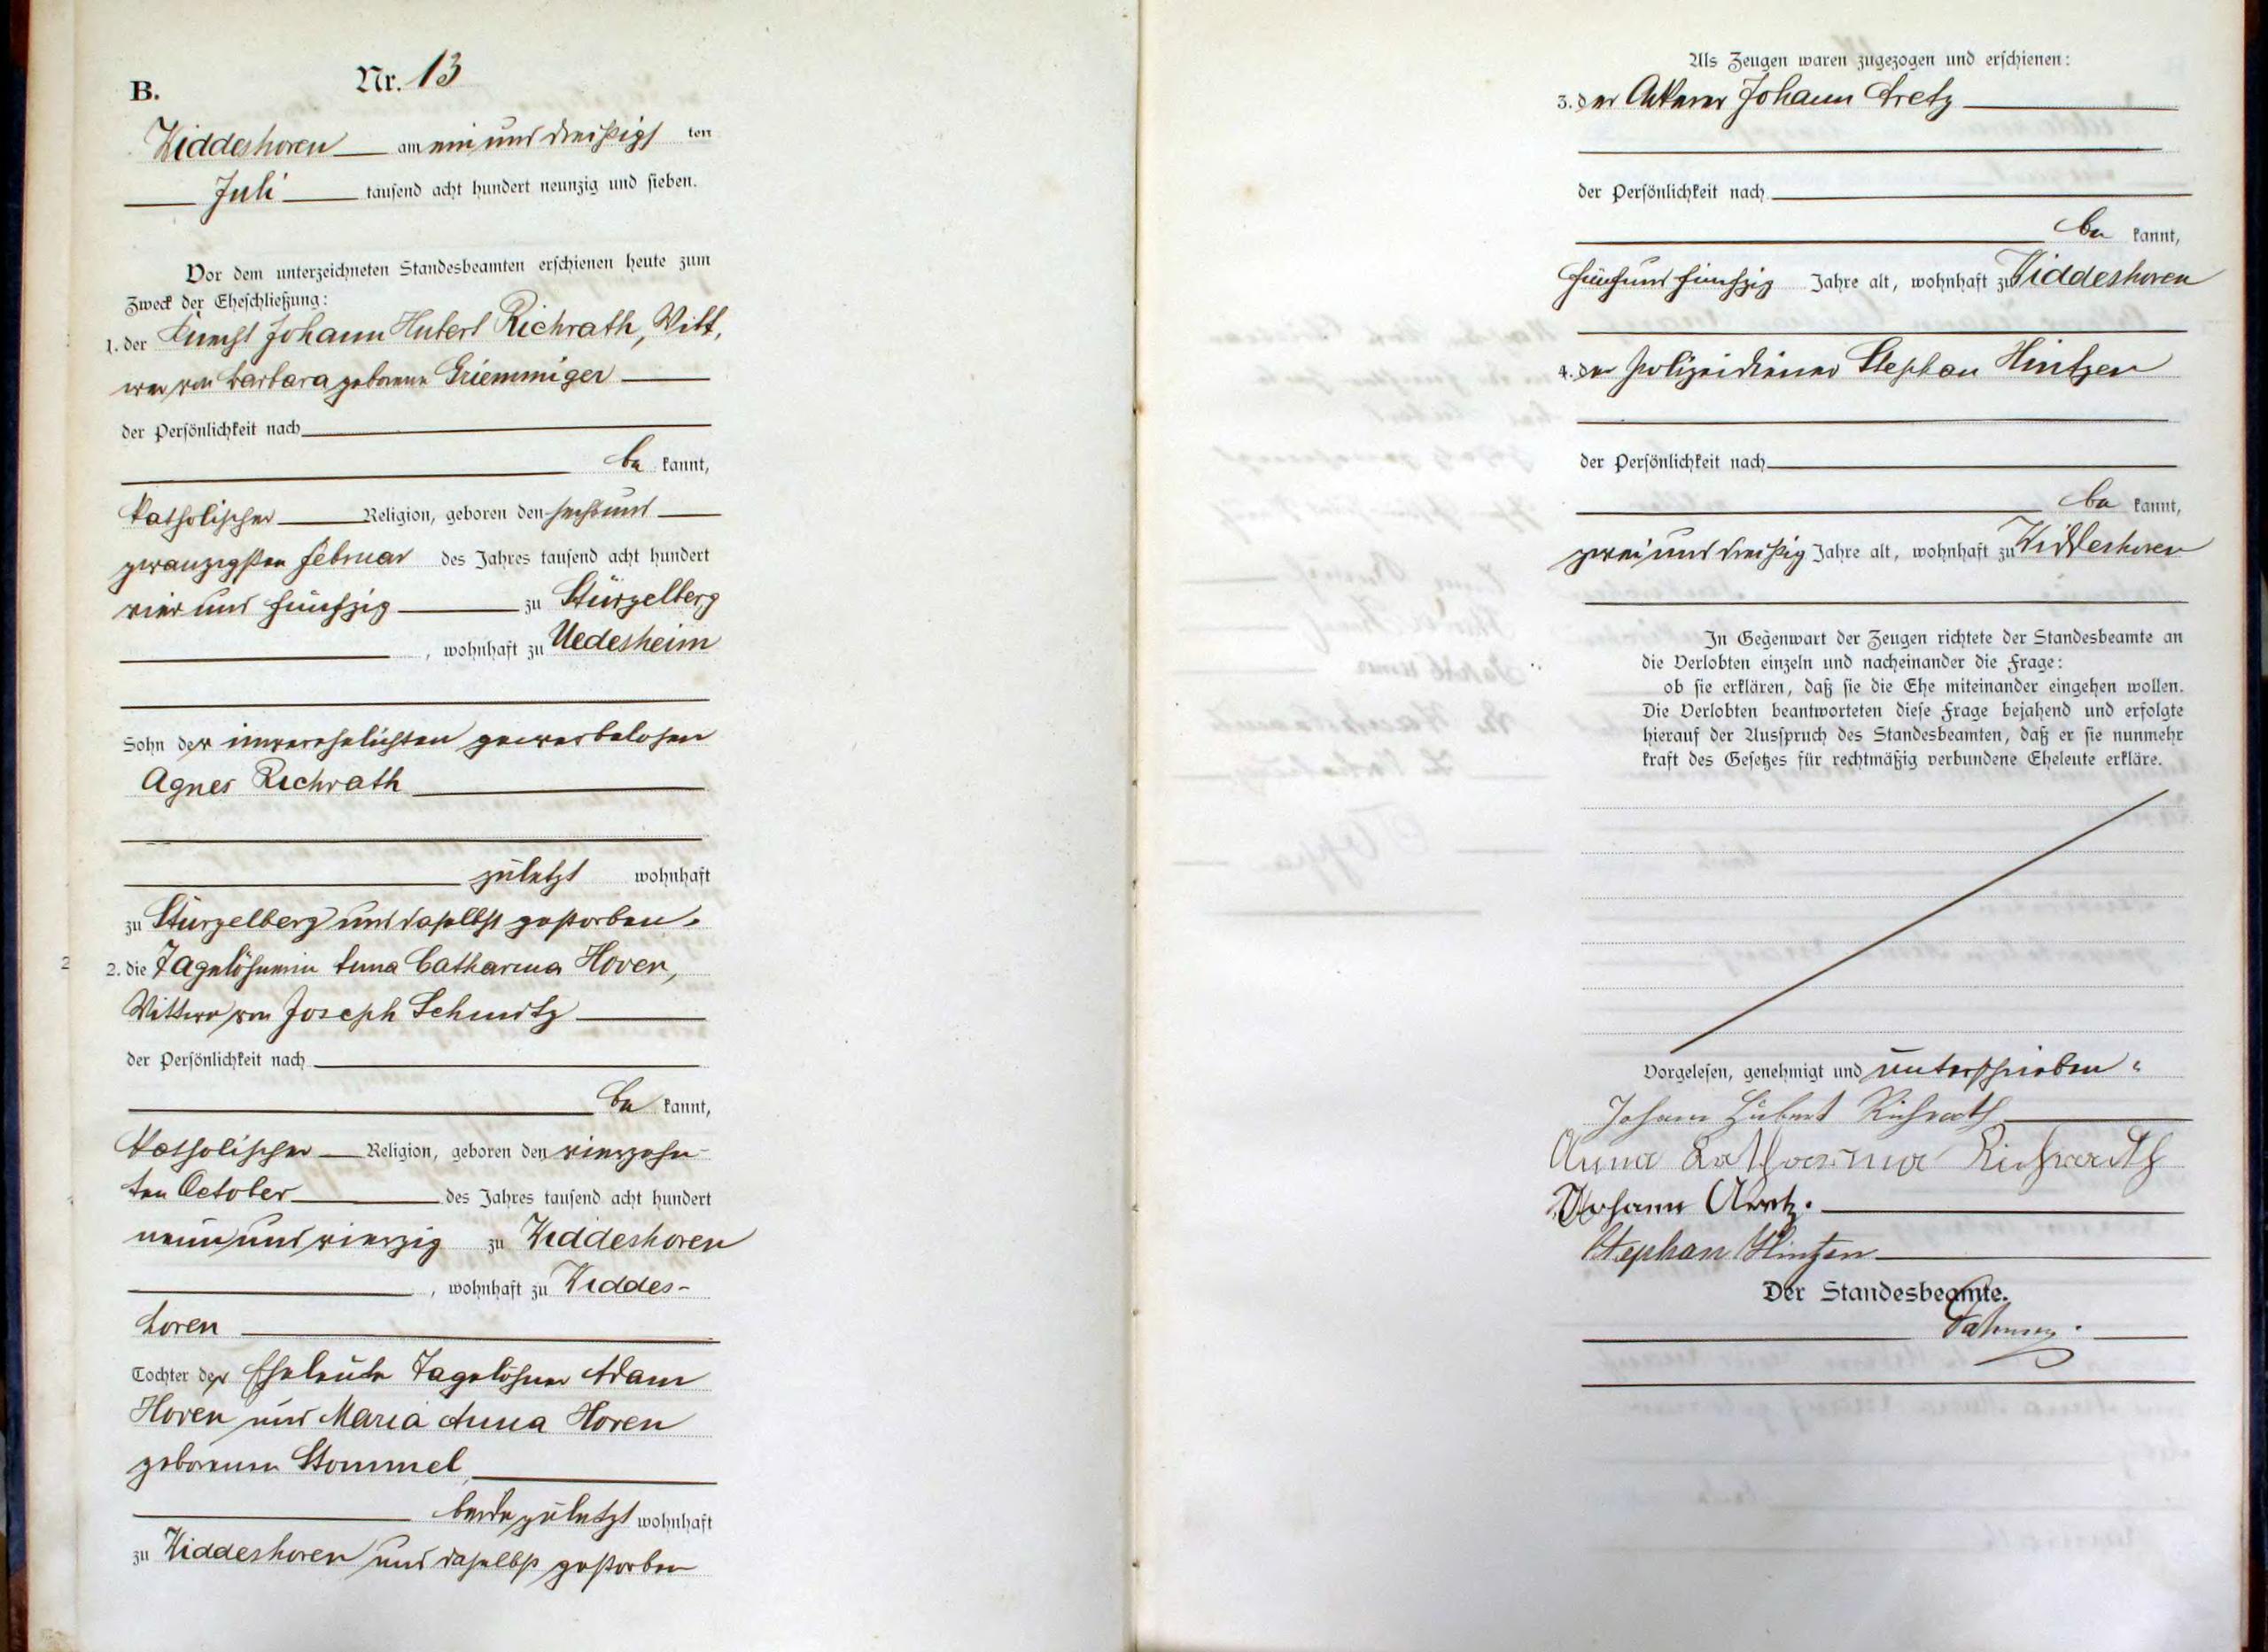 B.
Nr. 13
Widdeshoven am ein und dreißigs ten
Juli tausend acht hundert neunzig und sieben.
Vor dem unterzeichneten Standesbeamten erschienen heute zum
Zweck der Eheschließung:
1. der Knecht Johann Hubert Richrath, Witt,
wer von Barbara geborene Griemmiger
der Persönlichkeit nach
be kannt,
katholischer Religion, geboren den sechsund
zwanzigsten Februar des Jahres tausend acht hundert
vier und fünfzig zu Stürzelberg
, wohnhaft zu Uedesheim
Sohn der unverehelichten gewerbelosen
Agnes Richrath
zuletzt wohnhaft
zu Stürzelberg und daselbst gestorben.
2. die Tagelöhnerin Anna Catharina Hoven,
Wittwe von Joseph Schmitz
der Persönlichkeit nach
be kannt,
katholischer Religion, geboren den vierzehn-
ten October des Jahres tausend acht hundert
neun und vierzig zu Widdeshoven
, wohnhaft zu Widdes-
hoven
Tochter der Eheleute Tagelöhner Adam
Hoven und Maria Anna Hoven
geborenen Stommel
beide zuletzt wohnhaft
zu Widdeshoven und daselbst gestorben
Als Zeugen waren zugezogen und erschienen:
3. der Ackerer Johann Aretz
der Persönlichkeit nach
be kannt,
fünfund fünfzig Jahre alt, wohnhaft zu Widdeshoven
4. der Polizeidiener Stephan Hintzen
der Persönlichkeit nach
be kannt,
zwei und dreißig Jahre alt, wohnhaft zu Widdeshoven
In Gegenwart der Zeugen richtete der Standesbeamte an
die Verlobten einzeln und nacheinander die Frage:
ob sie erklären, daß sie die Ehe miteinander eingehen wollen.
Die Verlobten beantworteten diese Frage bejahend und erfolgte
hierauf der Ausspruch des Standesbeamten, daß er sie nunmehr
kraft des Gesetzes für rechtmäßig verbundene Eheleute erkläre.
Vorgelesen, genehmigt und unterschrieben
Johann Hubert Richrath
Anna Katharina Richrath
Johann Aretz.
Stephan Hintzen
Der Standesbeamte.